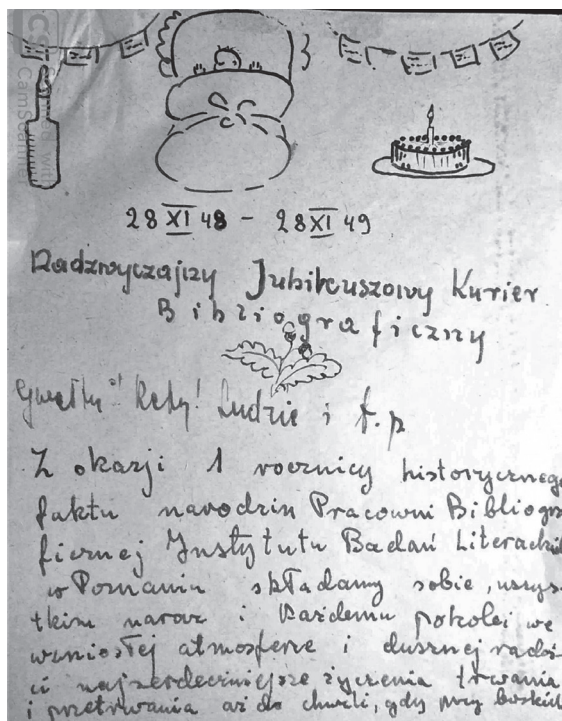 28 XI 48 – 28 XI 49
Nadzwyczajny Jubileuszowy Kurier
Bibliograficzny
Gwałtu! Rety! Ludzie i t.p
Z okazji 1 rocznicy historycznego
faktu narodzin Pracowni Bibliogra
ficznej Instytutu Badań Literackich
w Poznaniu składamy sobie, wszys-
tkim naraz i każdemu pokolei we
wzniosłej atmosferze i dusznej radoś-
ci najserdeczniejsze życzenia trwania
i przetrwania aż do chwili, gdy przy boskich
Scanned with
CamScanner